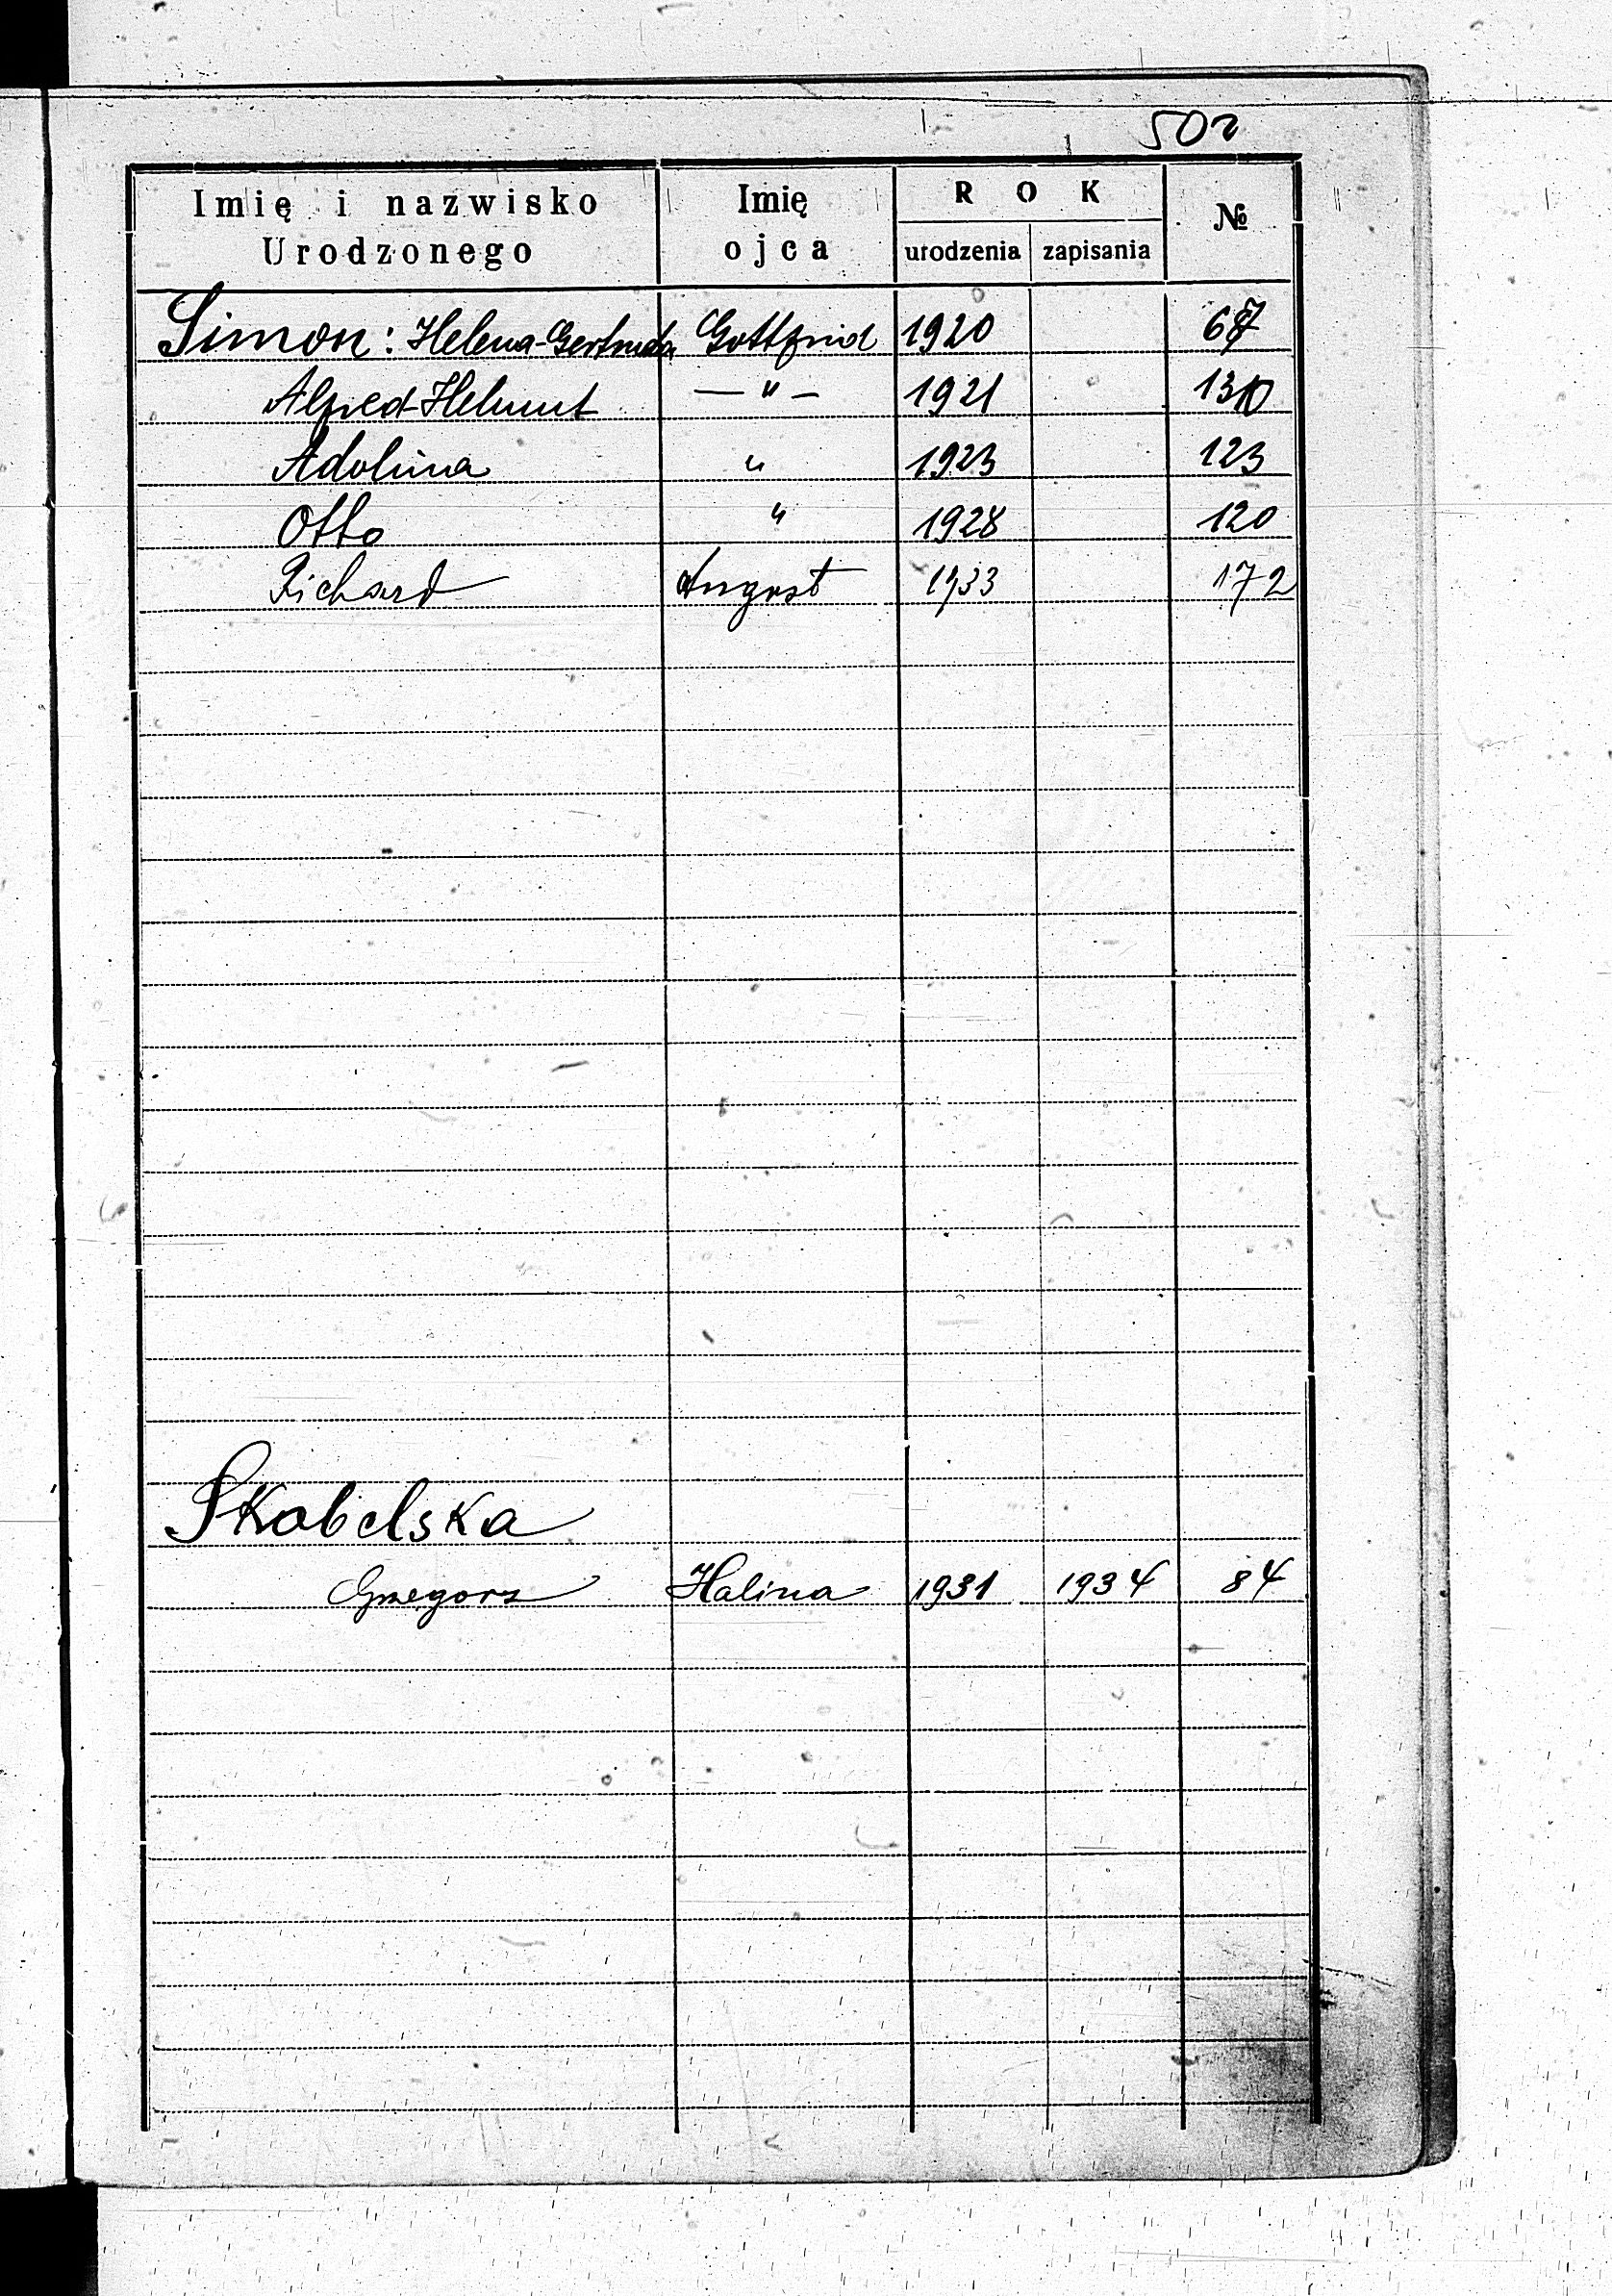 502
Imię i nazwisko Urodzonego | Imię ojca | ROK urodzenia | zapisania | №
Simon: Helena-Gertruda Gottfrid 1920 67
Alfred-Helmut — " — 1921 130
Adolina " 1923 123
Otto " 1928 120
Richard August 1933 172
Skobelska
Grzegorz Halina 1931 1934 84